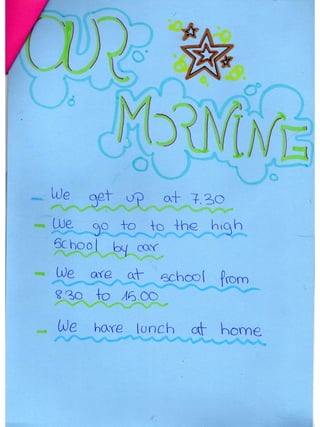 OUR
MORNING
- We get up at 7.30
- We go to to the high
school by car
- We are at school from
8.30 to 15.00
- We have lunch at home